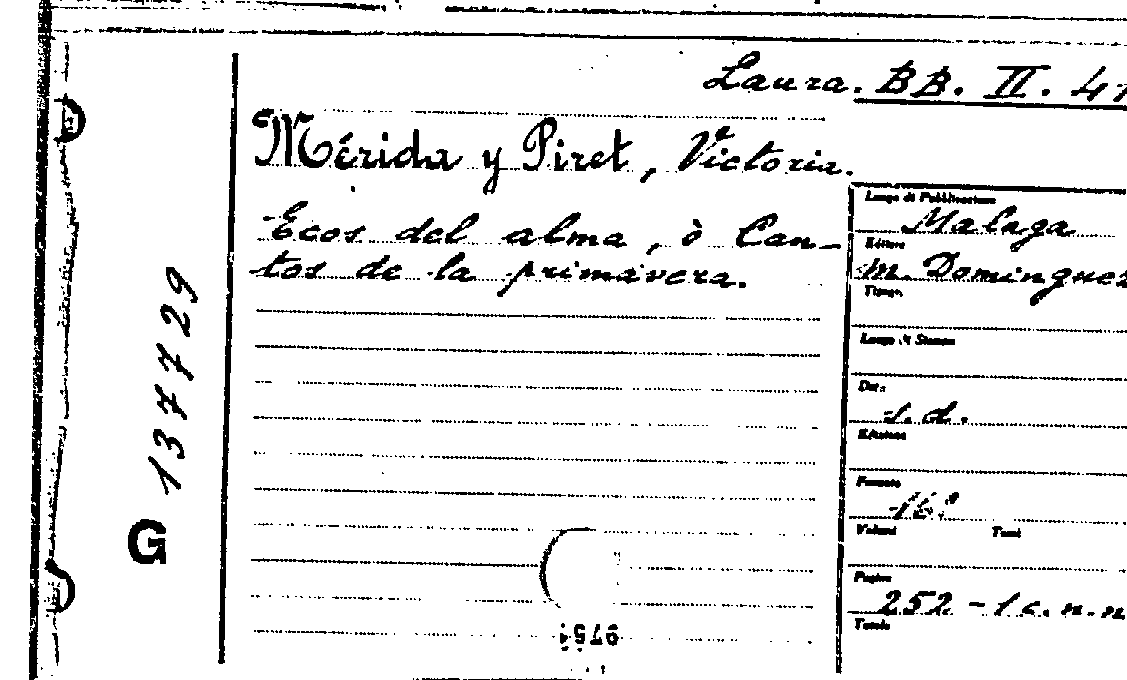 Laura. BB. II. 41
Mérida y Piret, Victoria.
Ecos del alma, ò Can-
tos de la primavera.
Luogo di Pubblicazione
Malaga
Editore
M. Dominguez
Tipogr.
Luogo di Stampa
Data
s.d.
Edizione
Formato
16º
Volumi Tomi
Pagine
252 - 1 c. n. n
Tavole
G 137729